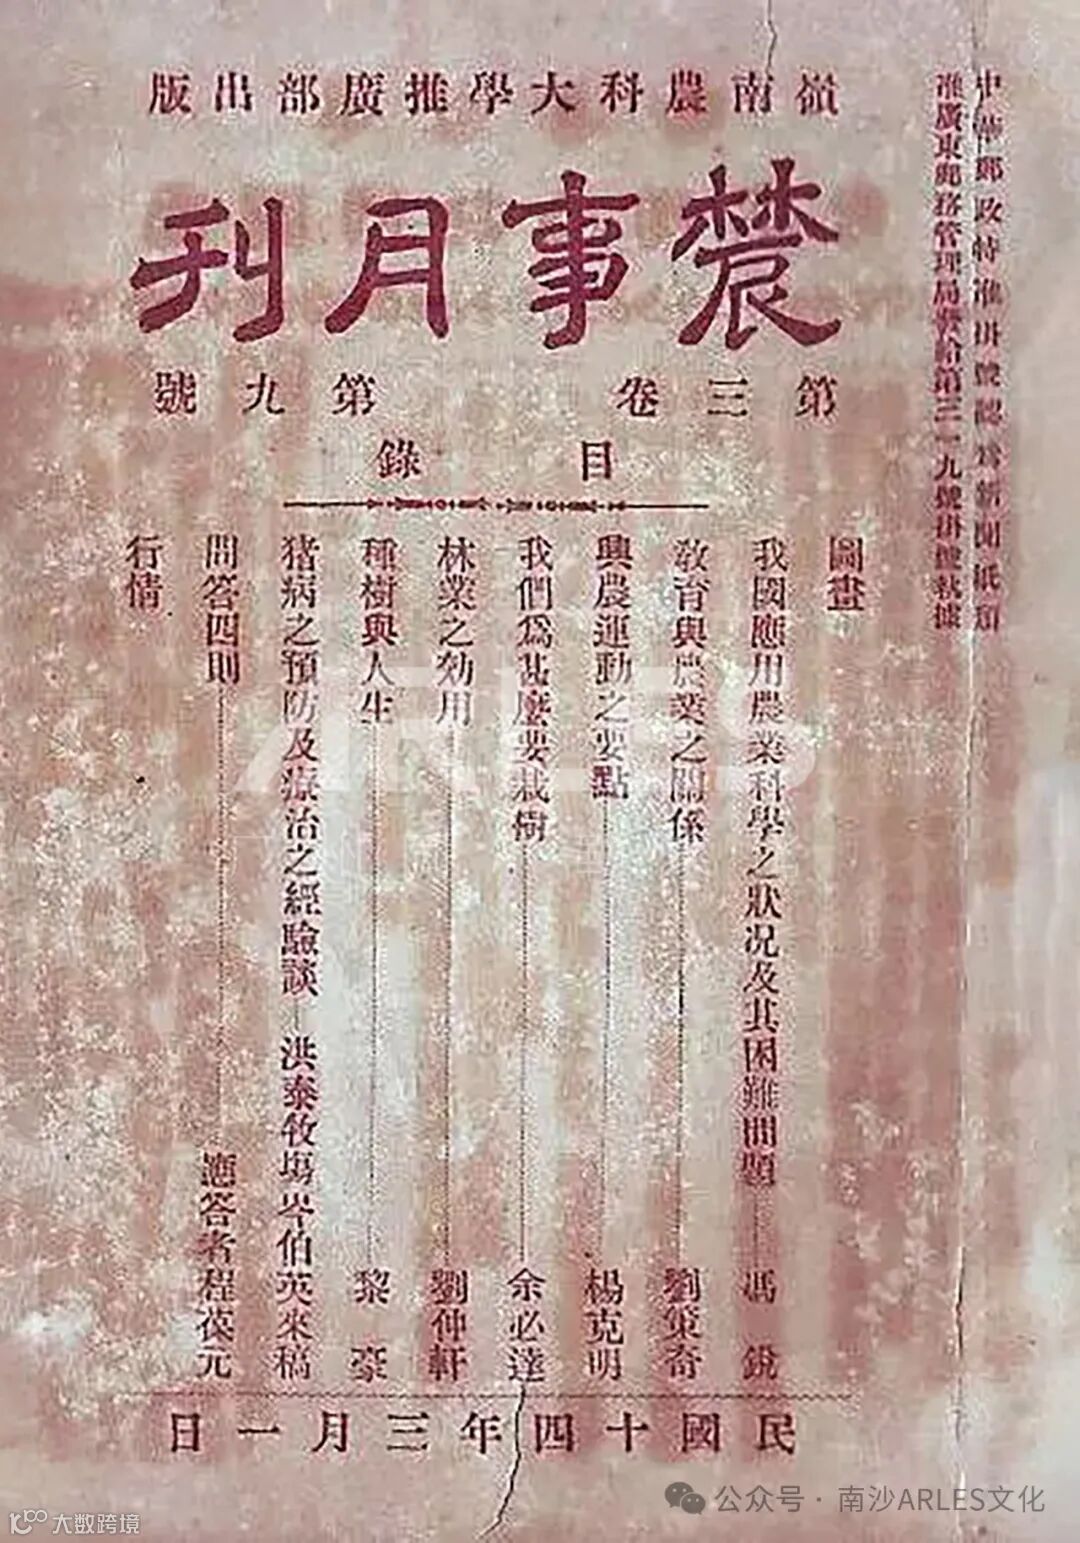 中華郵政特准掛號認爲新聞紙類
准廣東郵務管理局發給第三一九號掛號執據
嶺南農科大學推廣部出版
農事月刊
第三卷 第九號
目錄
圖畫
我國應用農業科學之狀况及其困難問題 馮銳
敎育與農業之關係 劉策奇
興農運動之要點 楊克明
我們爲甚麽要栽樹 余必達
林業之効用 劉仲軒
種樹與人生 黎豪
猪病之預防及療治之經驗談 洪泰牧塲岑伯英來稿
問答四則 應答者程葆元
行情
民國十四年三月一日
ARLES
公众号 · 南沙ARLES文化
大数跨境